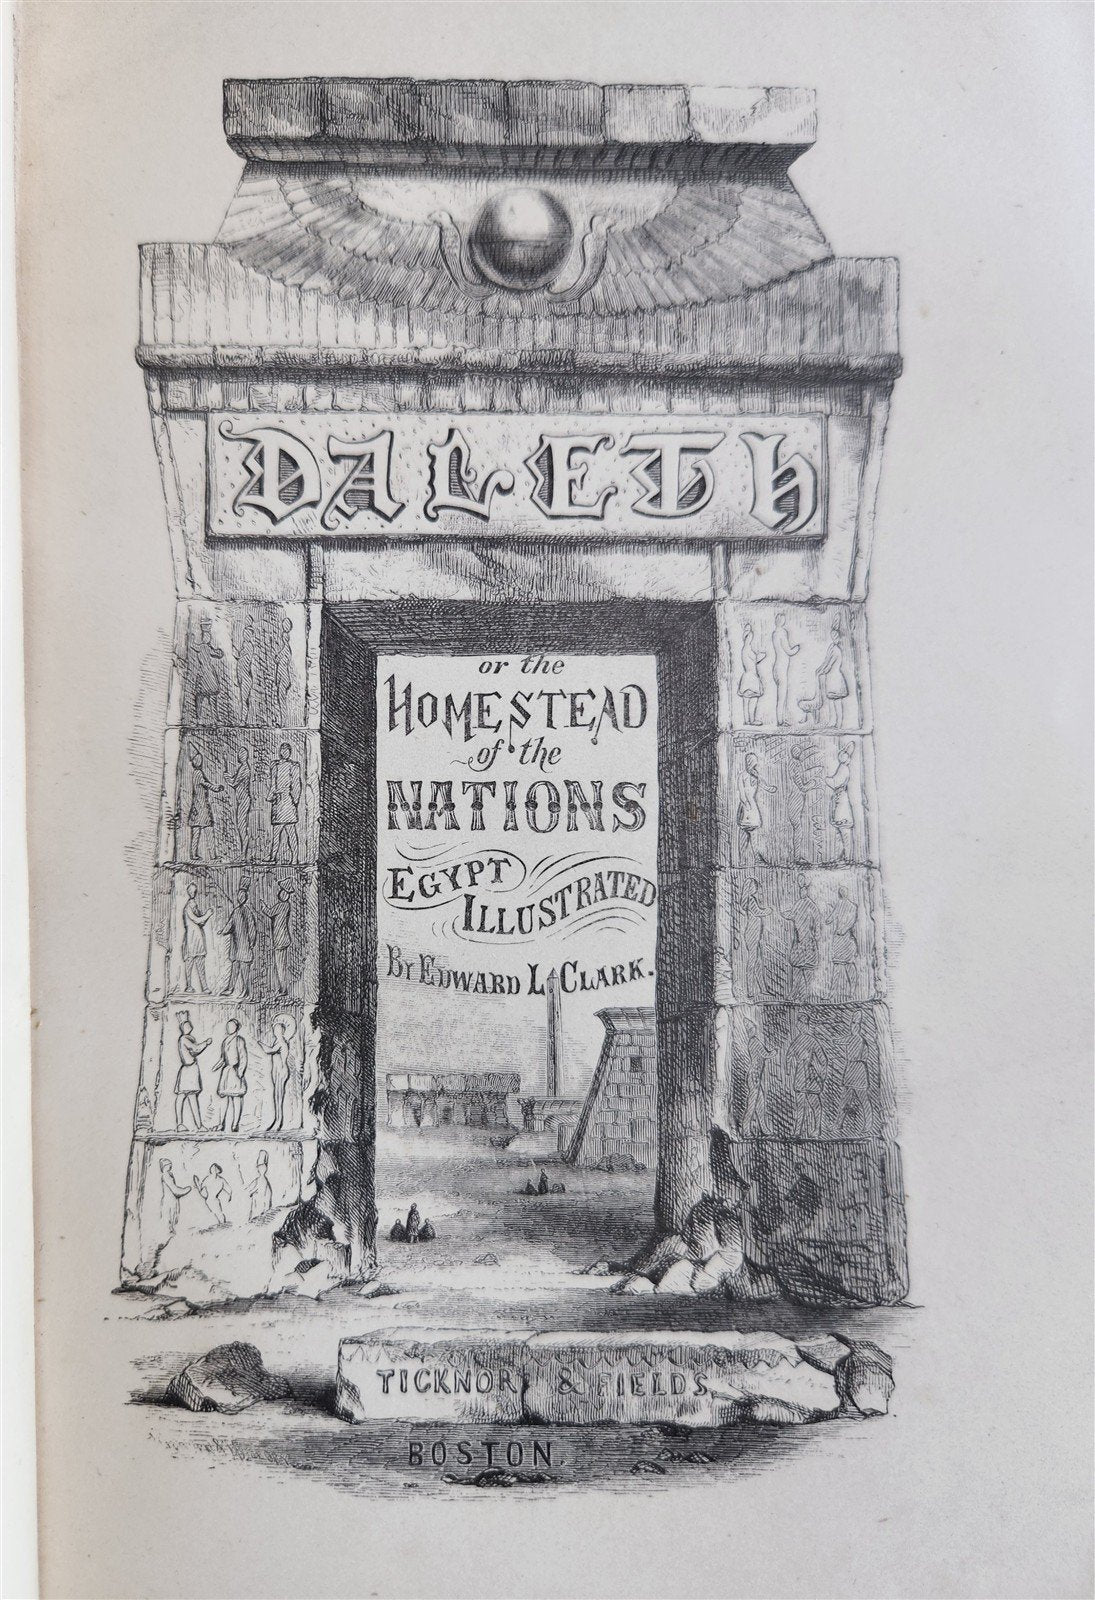 DALETH
or the
HOMESTEAD
of the
NATIONS
EGYPT
ILLUSTRATED
BY EDWARD L. CLARK.
TICKNOR & FIELDS,
BOSTON.